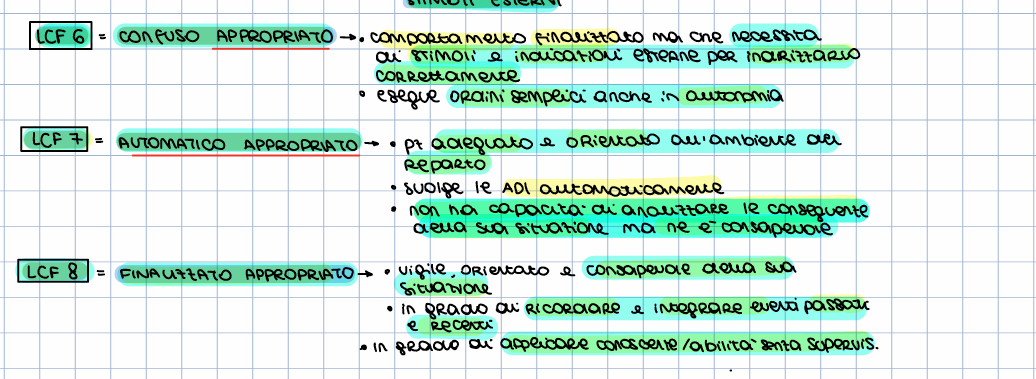 STIMOLI ESTERNI
LCF 6 = CONFUSO APPROPRIATO → • comportamento finalizzato ma che necessita
di stimoli e indicazioni esterne per indirizzarlo
correttamente
• esegue ordini semplici anche in autonomia
LCF 7 = AUTOMATICO APPROPRIATO → • pt adeguato e orientato all'ambiente del
reparto
• svolge le ADL automaticamente
• non ha capacità di analizzare le conseguenze
della sua situazione ma ne è consapevole
LCF 8 = FINALIZZATO APPROPRIATO → • vigile, orientato e consapevole della sua
situazione
• in grado di ricordare e integrare eventi passati
e recenti
• in grado di applicare conoscenze/abilità senza supervis.